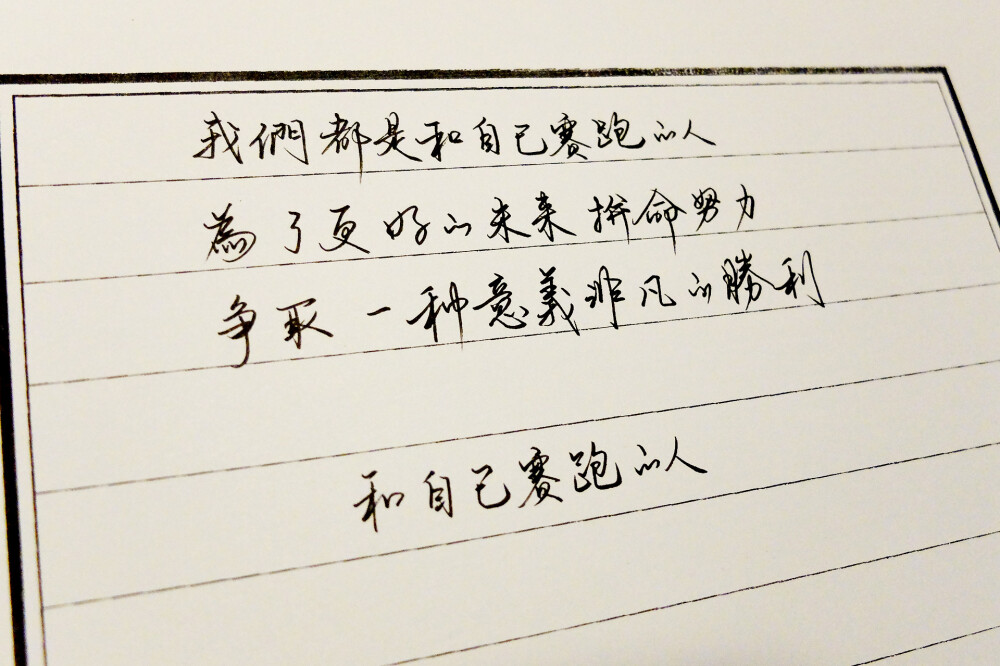 我們都是和自己賽跑的人
為了更好的未来拚命努力
争取一种意義非凡的勝利
和自己賽跑的人